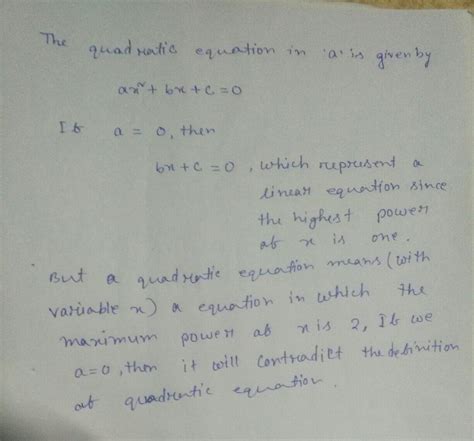 The quadratic equation in 'a' is given by
ax² + bx + c = 0
If a = 0, then
bx + c = 0, which represent a
linear equation since
the highest power
of x is one.
But a quadratic equation means (with
variable x) a equation in which the
maximum power of x is 2, If we
a=0, then it will contradict the definition
of quadratic equation.